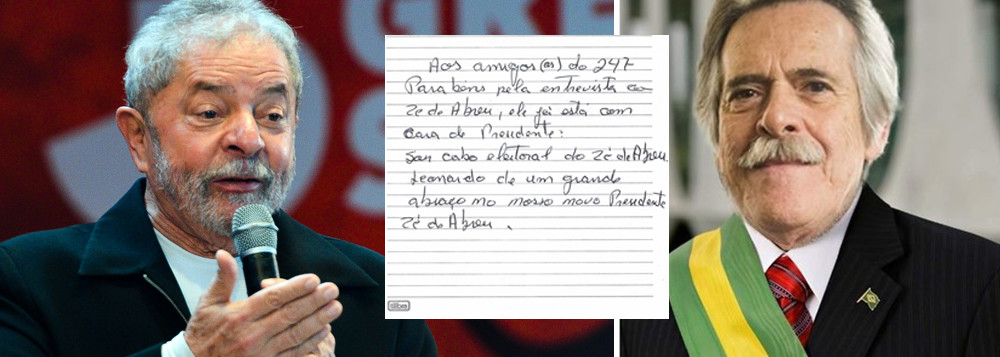 GRE
S
Aos amigos(as) do 247
Parabéns pela entrevista ao
Zé de Abreu, ele já está com
cara de Presidente:
Sou cabo eleitoral do Zé de Abreu
Leonardo de um grande
abraço no nosso novo Presidente
Zé de Abreu.
tilibra